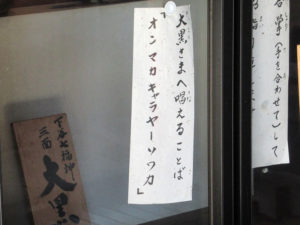 合掌(手を合わせて)して
大黒さまへ唱えることば
「オンマカキャラヤーソワカ」
七福神
三面
大黒